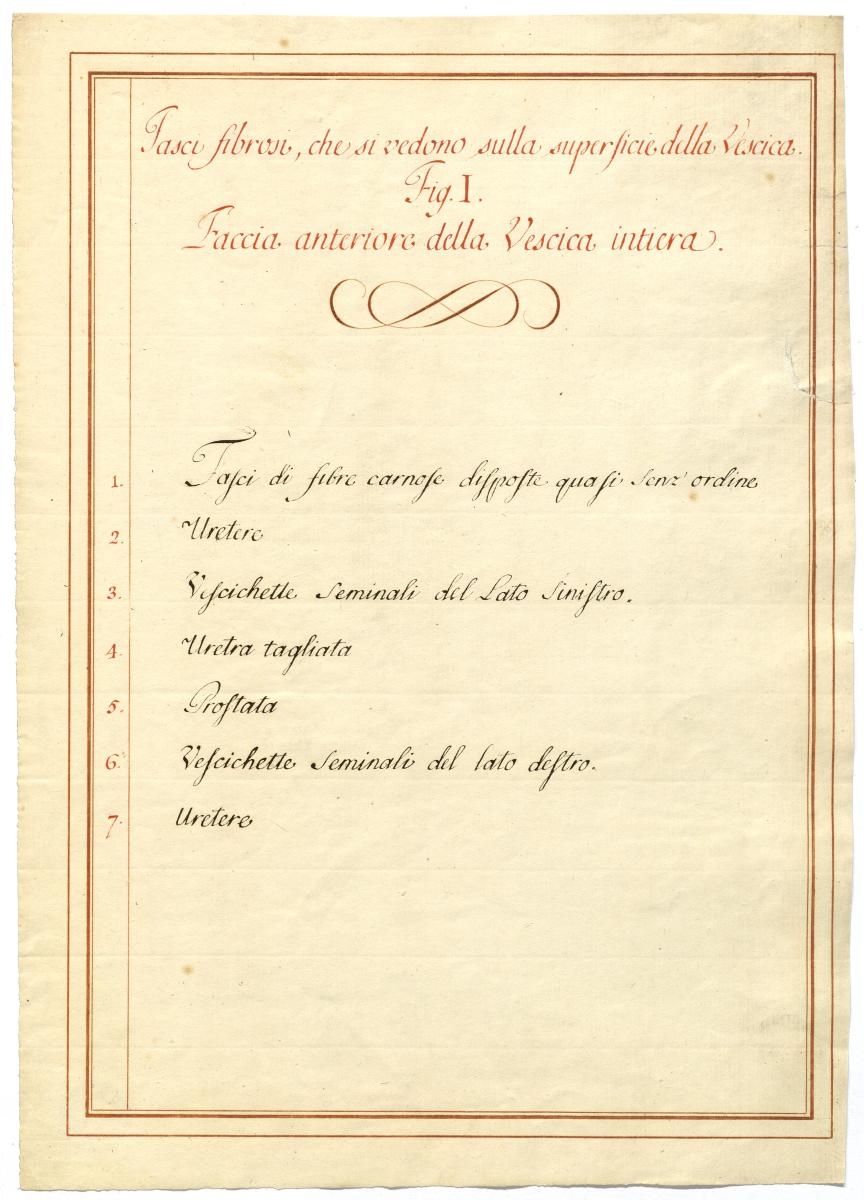 Fasci fibrosi, che si vedono sulla superficie della Vescica.
Fig. I.
Faccia anteriore della Vescica intiera.
1. Faſci di fibre carnoſe diſpoſte quaſi senz' ordine
2. Uretere
3. Veſcichette Seminali del Lato Siniſtro.
4. Uretra tagliata
5. Proſtata
6. Veſcichette Seminali del lato deſtro.
7. Uretere